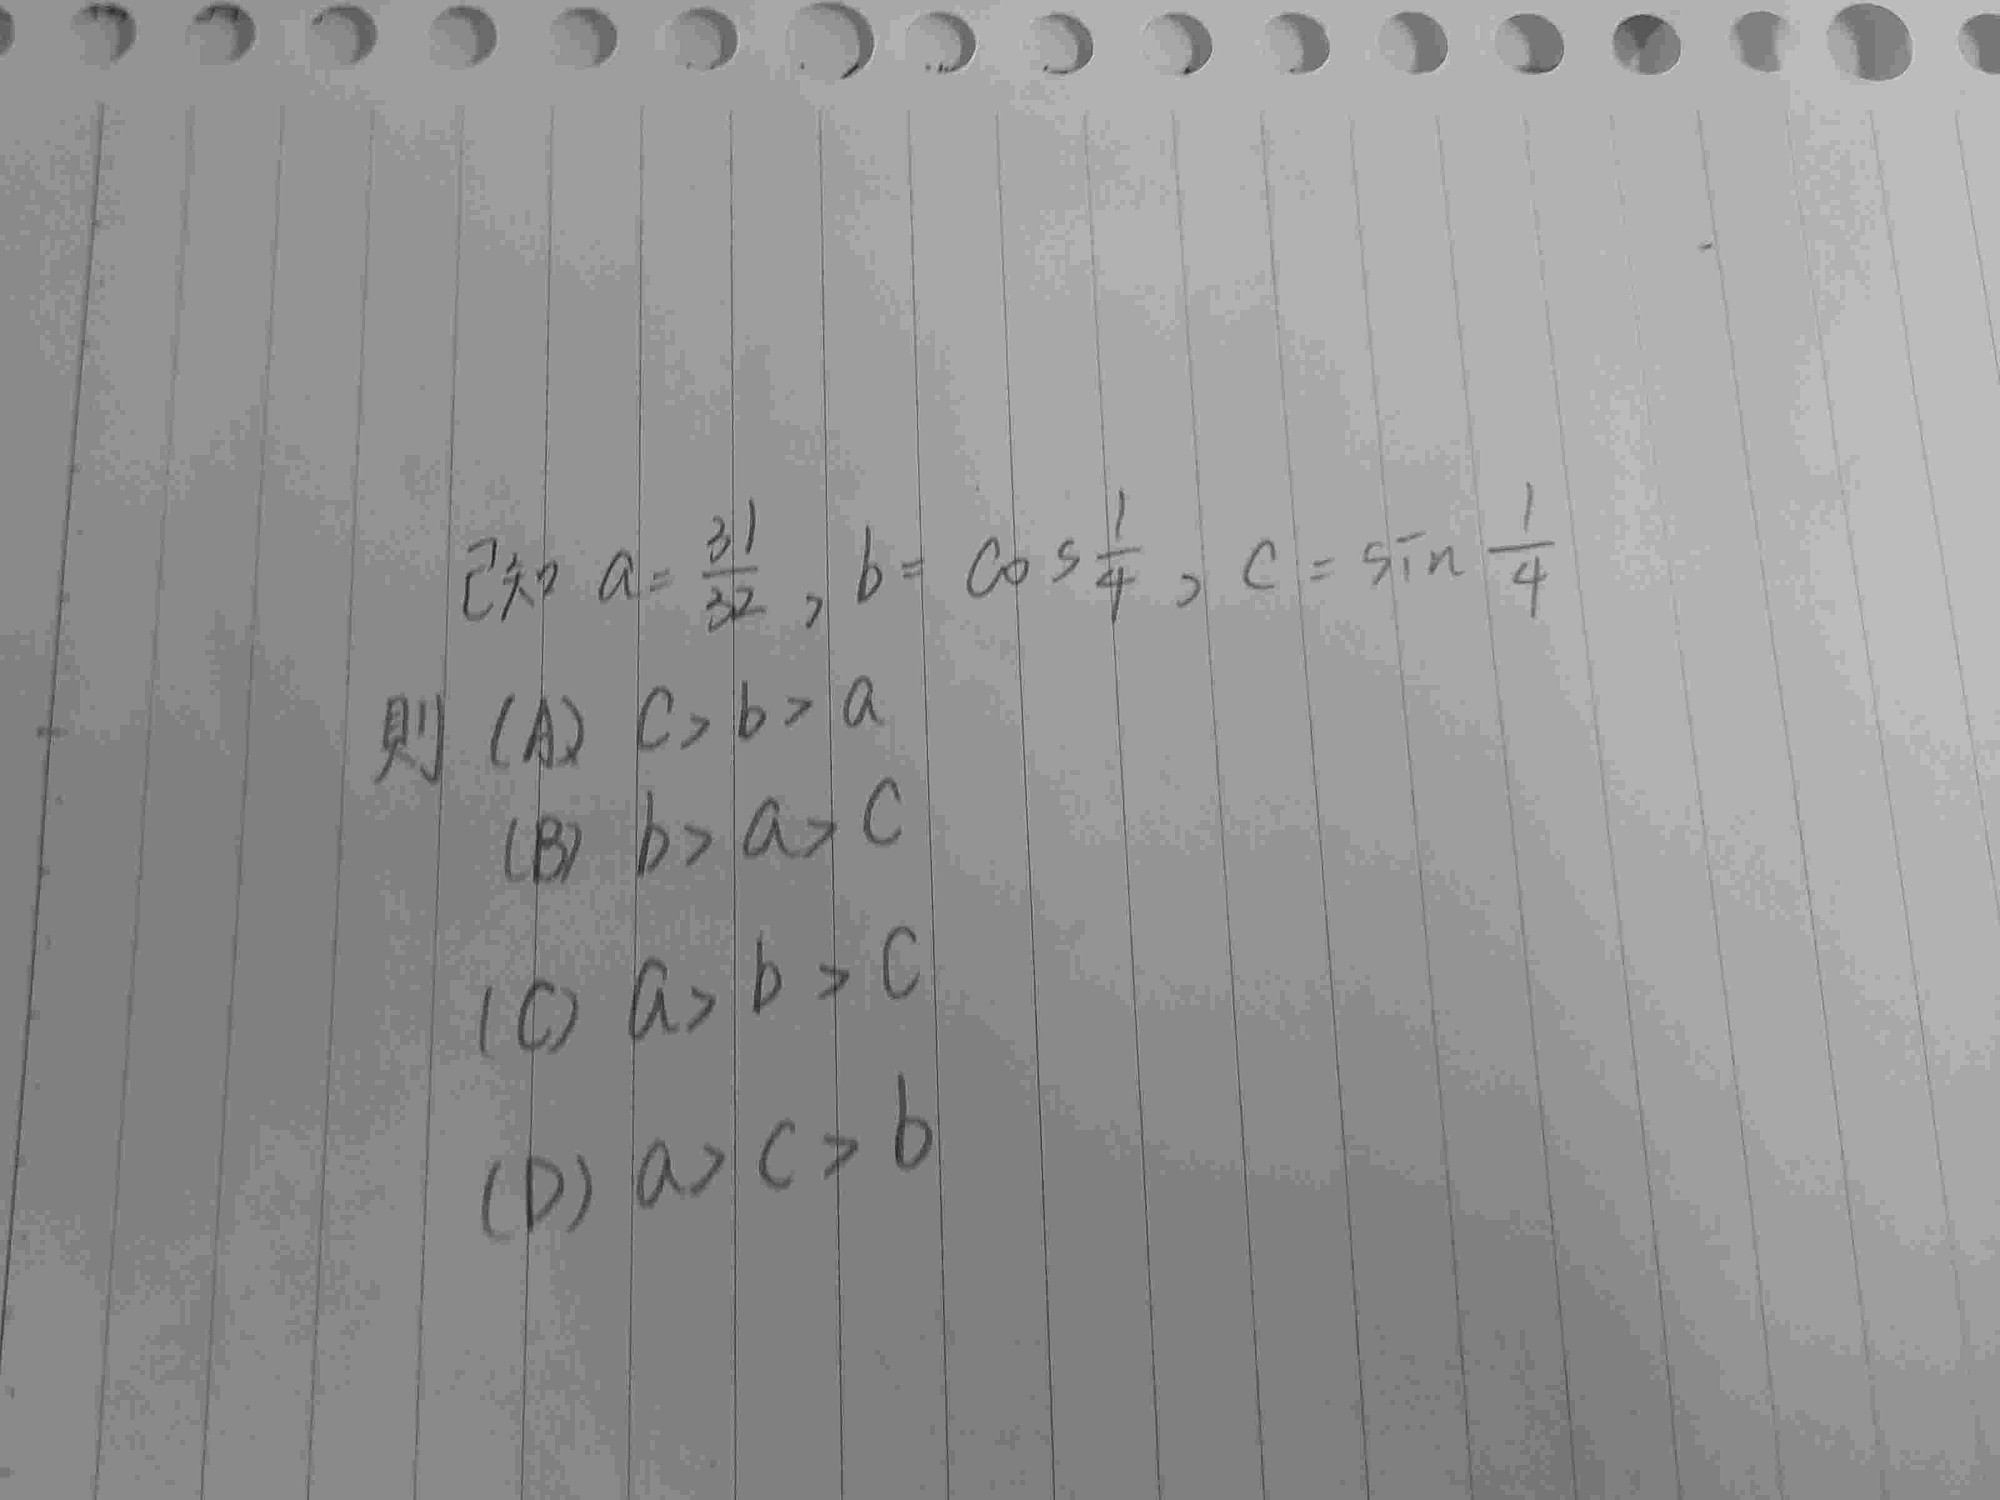 已知 a = 31/32 , b = cos 1/4 , c = sin 1/4
則 (A) c > b > a
(B) b > a > c
(C) a > b > c
(D) a > c > b